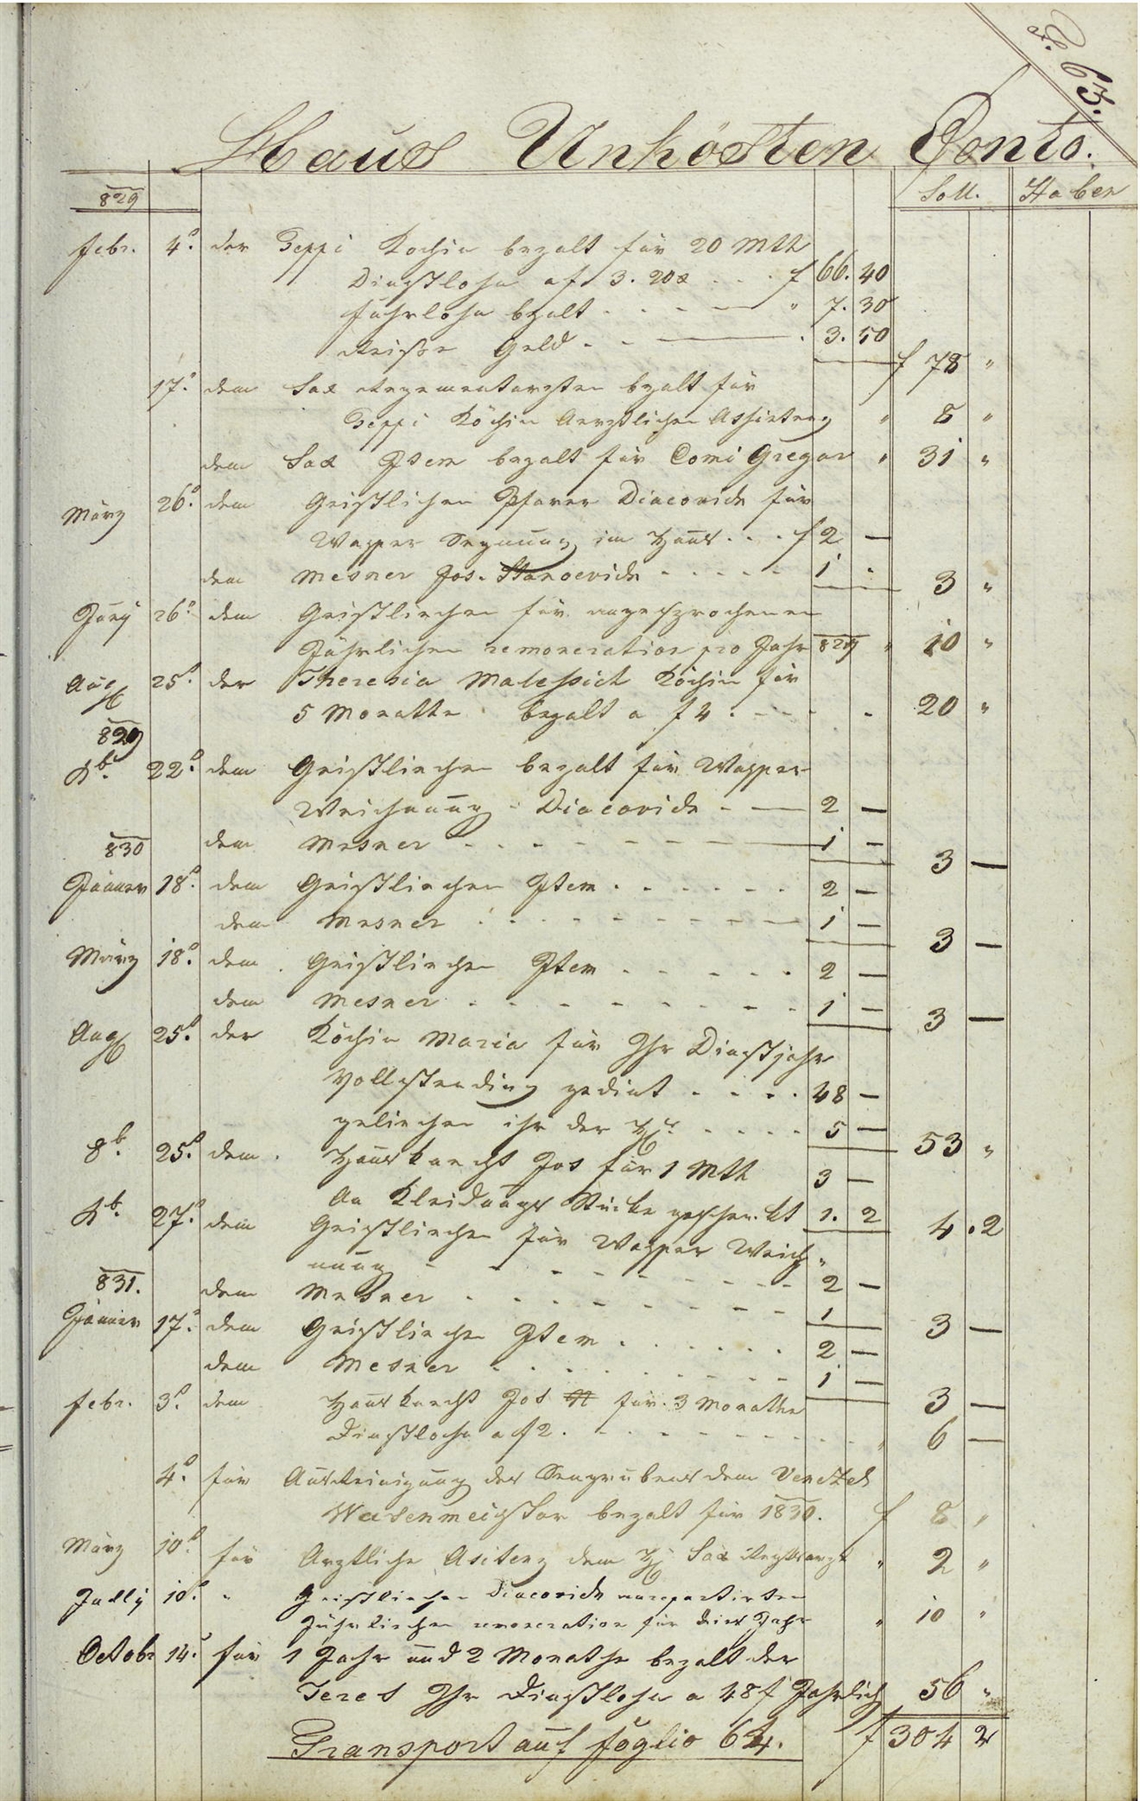 F. 63.
Haus Unkösten Conto.
829 Soll. Haber
Febr. 4. der Peppi Kochin bezalt für 20 Mth
Dinstlohn a f 3. 20x . . f 66. 40
Fuhrlohn bzalt . . . " 7. 30
Reisse Geld . . . 3. 50
f 78 "
17. dem Sax Regementarzten bzalt für
Peppi Köchin Aerztlichen Assistenz " 8 "
dem Sax Item bezalt für Comi Gregor " 31 "
März 26. dem Geistlichen Pfarer Diacovich für
Wasser Segnung im Haus . . . f 2 —
dem Mesner Jos. Stanoevich . . . . . 1 .
3 "
Juny 26. dem Geistlichen für ausgesprochenen
Jährlichen remoneration pro Jahr 829 " 10 "
Aug 25. der Theresia Malessich Köchin für
5 Monathe bezalt a f 4 . . . . 20 "
829
Xb. 22. dem Geistlichen bezalt für Wasser
Weichnung Diacovich . — 2 —
dem Mesner . . . . . 1 —
830 3 —
Jänner 18. dem Geistlichen Item . . . . . . 2 —
dem Mesner . . . . . 1 —
3 —
März 18. dem Geistlichen Item . . . . . 2 —
dem Mesner . . . . . 1 —
3 —
Aug 25. der Köchin Maria für Ihr Dinstjahr
Vollstending gedint . . . . 48 —
geliechen ihr der H . . . . 5 —
53 "
8b. 25. dem Hausknecht Jos für 1 Mth 3 —
An Kleidungs Stücke geschenkt 1. 2
4 . 2
Xb. 27. dem Geistlichen für Wasser Weich
nung . . . . . . 2 —
831. dem Mesner . . . . . . 1
3 —
Jänner 17. dem Geistlichen Item . . . . . . 2 —
dem Mesner . . . . . . 1 —
3 —
Febr. 3. dem Hausknecht Jos für 3 Monathe
Dinstlohn a f 2 . . . . . . " 6 —
4. für Ausreinigung des Sengrubens dem Venczel
Wasenmeister bezalt für 1830. f 8 "
März 10. für Arztliche Asitenz dem H Sax " 2 "
Jully 10. " Geistlichen Diacovich
Jährlichen remoneration für dies Jahr " 10 "
Octobr 14. für 1 Jahr und 2 Monathe bezalt der
Teres Ihr Dinstlohn a 48f Jahrlich 56 "
Transport auf foglio 64. f 304 2